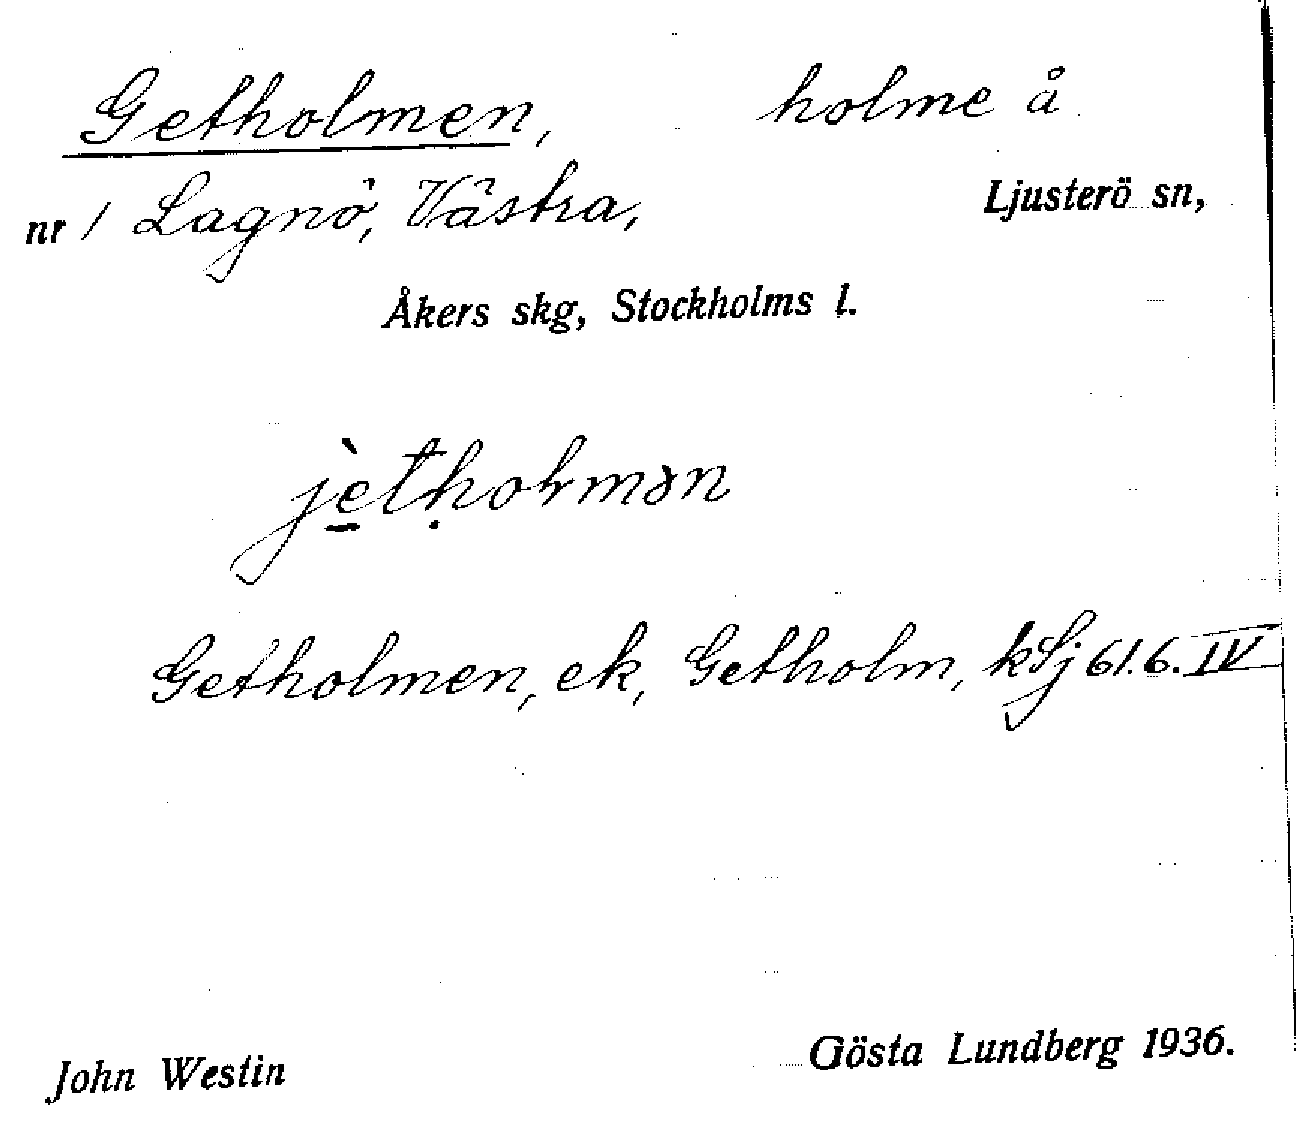 Getholmen, holme å
nr 1 Lagnö, Västra, Ljusterö sn,
Åkers skg, Stockholms l.
jètholmən
Getholmen, ek, Getholm, kSj 61.6.IV
John Westin Gösta Lundberg 1936.